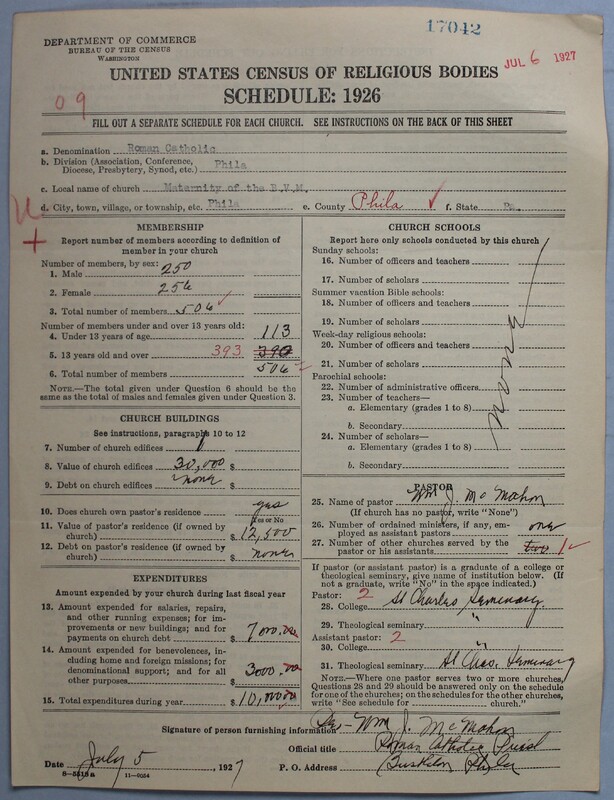 17042
DEPARTMENT OF COMMERCE
BUREAU OF THE CENSUS
WASHINGTON
JUL 6 1927
UNITED STATES CENSUS OF RELIGIOUS BODIES
SCHEDULE: 1926
09
FILL OUT A SEPARATE SCHEDULE FOR EACH CHURCH. SEE INSTRUCTIONS ON THE BACK OF THIS SHEET
a. Denomination Roman Catholic
b. Division (Association, Conference,
Diocese, Presbytery, Synod, etc.) Phila
c. Local name of church Maternity of the B.V.M.
d. City, town, village, or township, etc. Phila e. County Phila f. State Pa.
MEMBERSHIP
Report number of members according to definition of
member in your church
Number of members, by sex:
1. Male 250
2. Female 256
3. Total number of members 506
Number of members under and over 13 years old:
4. Under 13 years of age 113
5. 13 years old and over 393 390
6. Total number of members 506
NOTE.—The total given under Question 6 should be
the same as the total of males and females given under Question 3.
CHURCH BUILDINGS
See instructions, paragraphs 10 to 12
7. Number of church edifices 1
8. Value of church edifices 30,000 $
9. Debt on church edifices none $
10. Does church own pastor's residence yes
Yes or No
11. Value of pastor's residence (if owned by
church) $ 12,500
12. Debt on pastor's residence (if owned by
church) $ none
EXPENDITURES
Amount expended by your church during last fiscal year
13. Amount expended for salaries, repairs,
and other running expenses; for im-
provements or new buildings; and for
payments on church debt $ 7000.00
14. Amount expended for benevolences, in-
cluding home and foreign missions; for
denominational support; and for all
other purposes $ 3000.00
15. Total expenditures during year $ 10,000.00
CHURCH SCHOOLS
Report here only schools conducted by this church
Sunday schools:
16. Number of officers and teachers
17. Number of scholars
Summer vacation Bible schools:
18. Number of officers and teachers
19. Number of scholars
Week-day religious schools:
20. Number of officers and teachers
21. Number of scholars
Parochial schools:
22. Number of administrative officers
23. Number of teachers—
a. Elementary (grades 1 to 8)
b. Secondary
24. Number of scholars—
a. Elementary (grades 1 to 8)
b. Secondary
none
PASTOR
25. Name of pastor Wm J. McMahon
(If church has no pastor, write "None")
26. Number of ordained ministers, if any, em-
ployed as assistant pastors one
27. Number of other churches served by the
pastor or his assistants two 1
If pastor (or assistant pastor) is a graduate of a college or
theological seminary, give name of institution below. (If
not a graduate, write "No" in the space indicated.)
Pastor: 2
28. College St Charles Seminary
29. Theological seminary "
Assistant pastor: 2
30. College "
31. Theological seminary St Chas. Seminary
NOTE.—Where one pastor serves two or more churches,
Questions 28 and 29 should be answered only on the schedule
for one of the churches; on the schedules for the other churches,
write "See schedule for church."
Signature of person furnishing information Wm J. McMahon
Official title Roman Catholic Priest
Date July 5, 1927 P. O. Address Bustleton Phila
8—5513a 11—9054